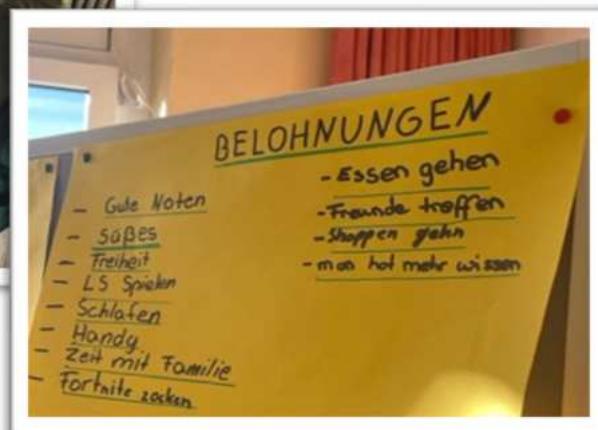 BELOHNUNGEN
- Gute Noten
- Süßes
- Freiheit
- LS Spielen
- Schlafen
- Handy
- Zeit mit Familie
- Fortnite zocken
- Essen gehen
- Freunde treffen
- Shoppen gehn
- man hat mehr wissen